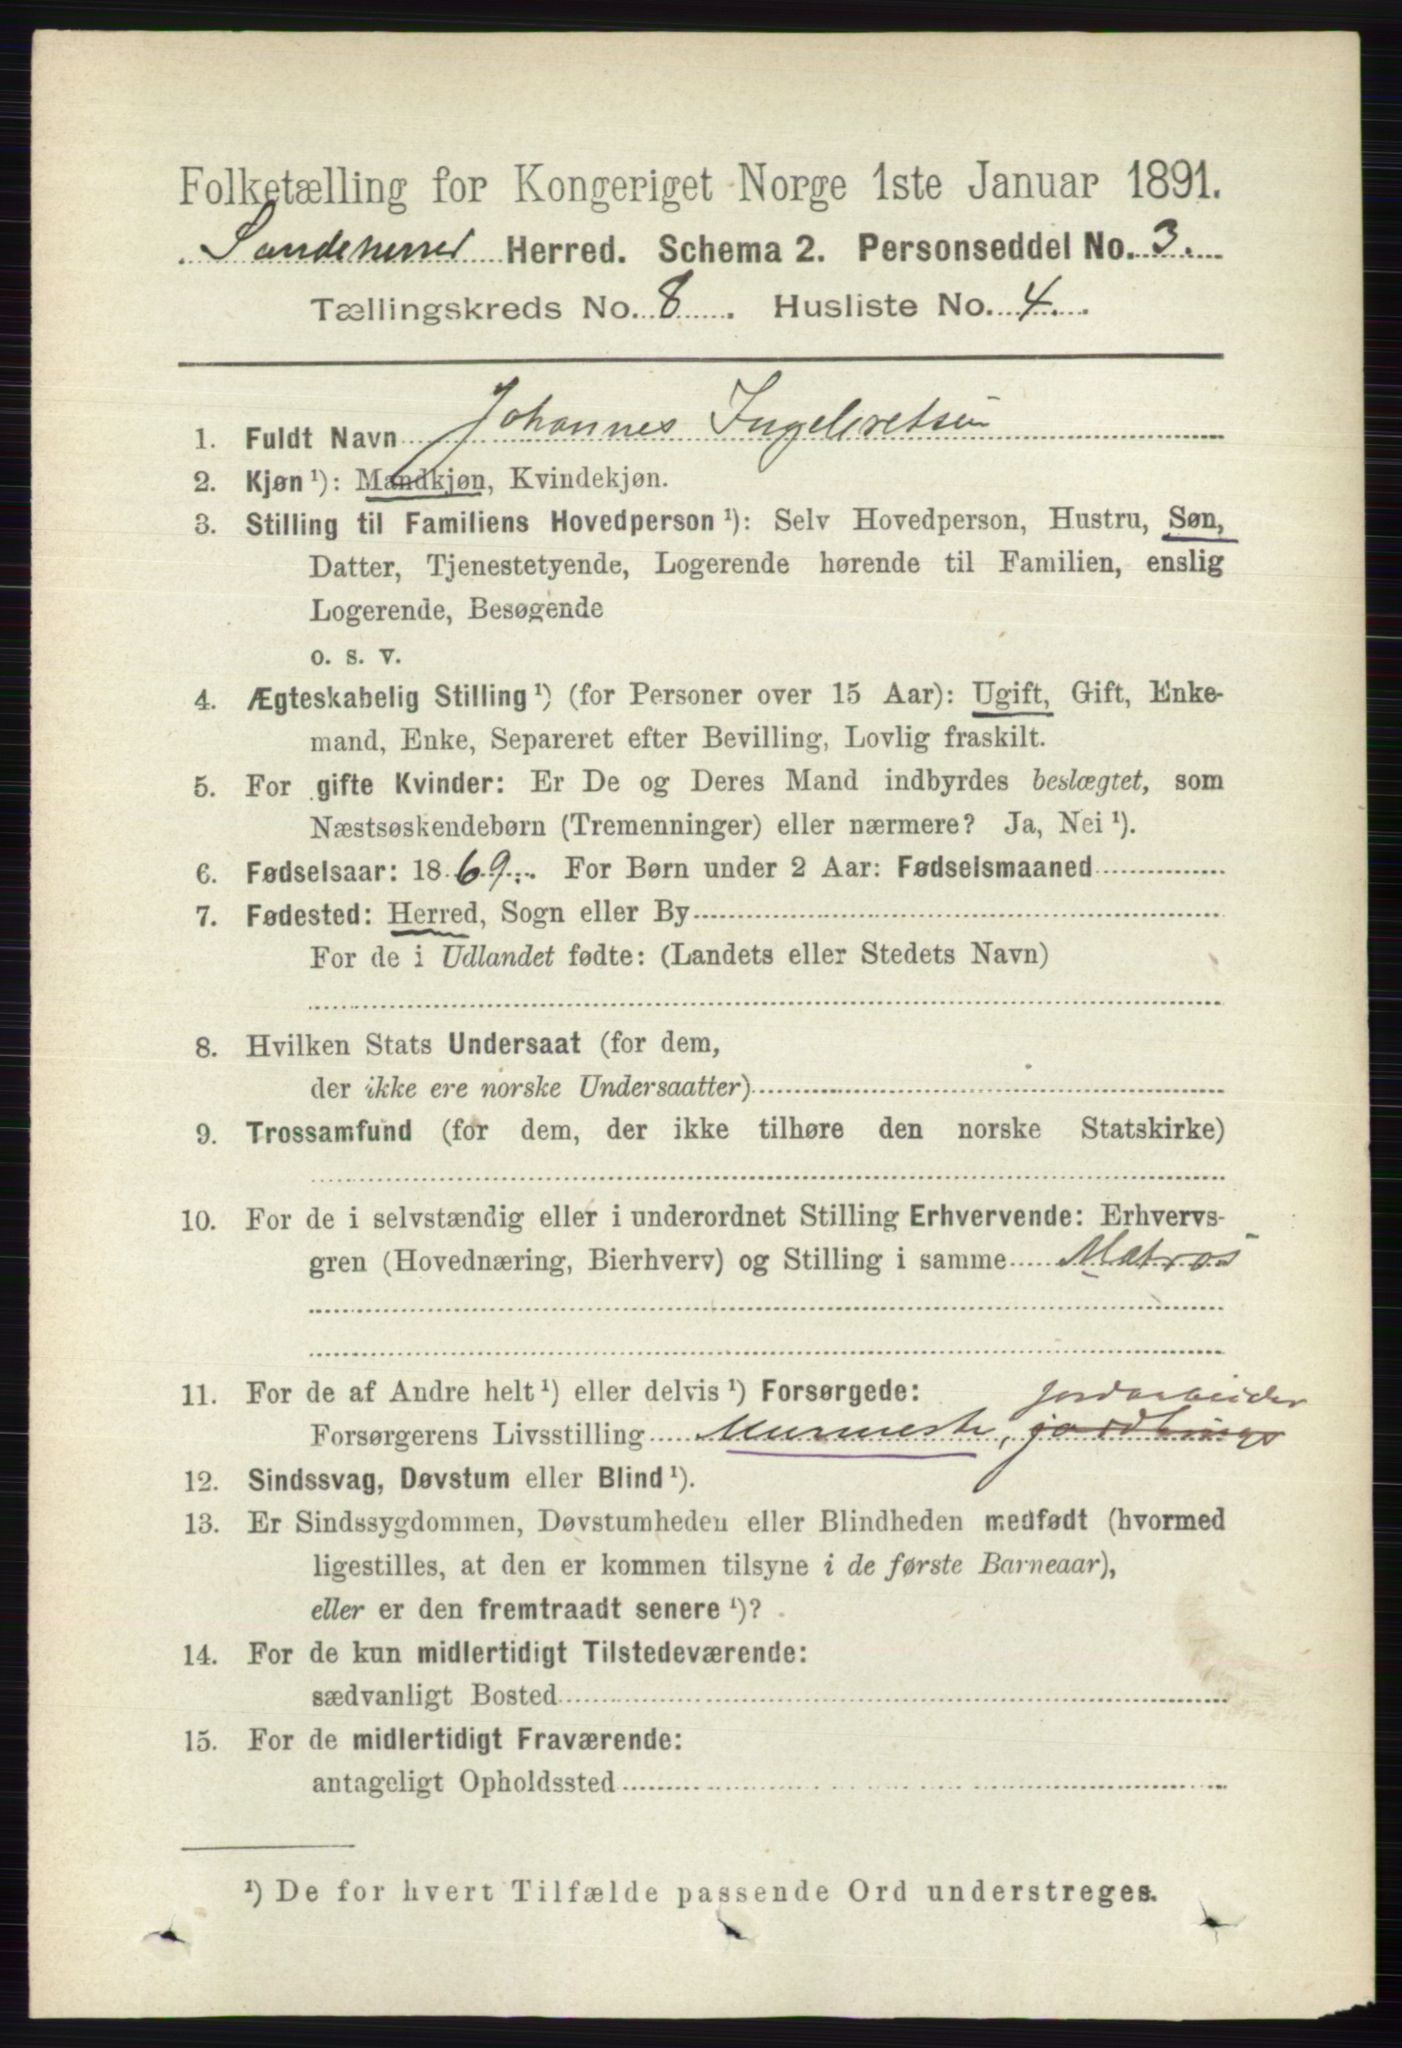 Folketælling for Kongeriget Norge 1ste Januar 1891.
Sandeherred Herred. Schema 2. Personseddel No. 3.
Tællingskreds No. 8. Husliste No. 4.
1. Fuldt Navn Johannes Ingebretsen
2. Kjøn ¹): Mandkjøn, Kvindekjøn.
3. Stilling til Familiens Hovedperson ¹): Selv Hovedperson, Hustru, Søn,
Datter, Tjenestetyende, Logerende hørende til Familien, enslig
Logerende, Besøgende
o. s. v.
4. Ægteskabelig Stilling ¹) (for Personer over 15 Aar): Ugift, Gift, Enke-
mand, Enke, Separeret efter Bevilling, Lovlig fraskilt.
5. For gifte Kvinder: Er De og Deres Mand indbyrdes beslægtet, som
Næstsøskendebørn (Tremenninger) eller nærmere? Ja, Nei ¹).
6. Fødselsaar: 1869. For Børn under 2 Aar: Fødselsmaaned
7. Fødested: Herred, Sogn eller By
For de i Udlandet fødte: (Landets eller Stedets Navn)
8. Hvilken Stats Undersaat (for dem,
der ikke ere norske Undersaatter)
9. Trossamfund (for dem, der ikke tilhøre den norske Statskirke)
10. For de i selvstændig eller i underordnet Stilling Erhvervende: Erhvervs-
gren (Hovednæring, Bierhverv) og Stilling i samme Matros
11. For de af Andre helt ¹) eller delvis ¹) Forsørgede: jordarbeider
Forsørgerens Livsstilling Murmester,
12. Sindssvag, Døvstum eller Blind ¹).
13. Er Sindssygdommen, Døvstumheden eller Blindheden medfødt (hvormed
ligestilles, at den er kommen tilsyne i de første Barneaar),
eller er den fremtraadt senere ¹)?
14. For de kun midlertidigt Tilstedeværende:
sædvanligt Bosted
15. For de midlertidigt Fraværende:
antageligt Opholdssted
¹) De for hvert Tilfælde passende Ord understreges.